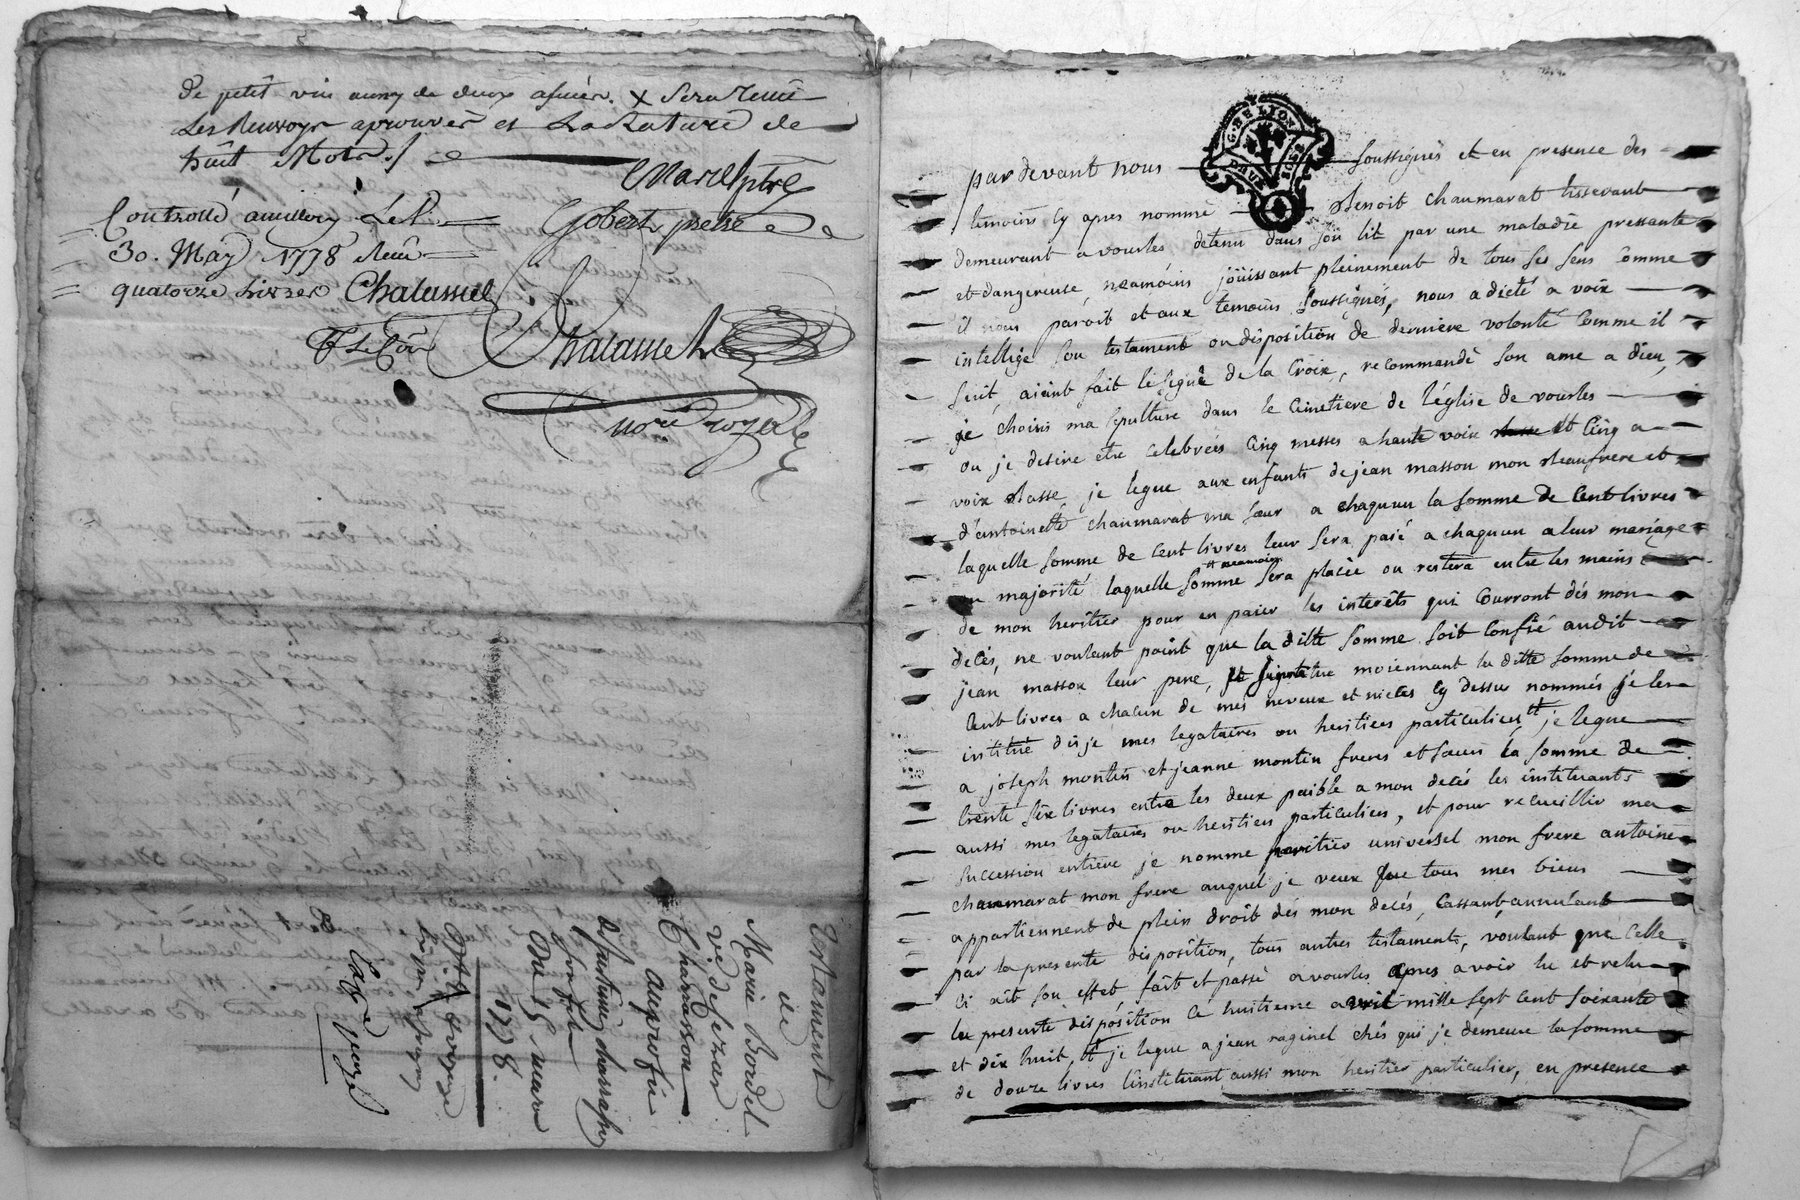 de petit vin aumg de deux asnées. x sera tenue
Les Renvoys aprouvés et La Rature de
huit Mots./.
Marest ptre
Gobert pretre
Controllé a millery Le
30. May 1778 Reçu
quatorze livres Chalassiel
Chalassiel
nore royal
Testament
de
Marie Bordel
ve de Sezar
Charrasson
au profit
d'Antoine charrasson
son fils
Du 15 mars
1778.
G. DE LYON
pardevant nous soussignés et en presence des
temoins cy apres nommé Benoit chaumarat tisserant
demeurant a vourles detenu dans son lit par une maladie pressante
et dangereuse, neamoins joüissant pleinement de tous ses sens comme
il nous paroit et aux temoins soussignés, nous a dicté a voix
intellige son testament ou disposition de derniere volonté comme il
suit, aiant fait le signe de la Croix, recommandé son ame a dieu,
je choisis ma sepulture dans le Cimetiere de l'église de vourles
ou je desire etre celebrées cinq messes a haute voix et cinq a
voix Basse, je legue aux enfants de jean masson mon Beaufrere et
d'antoinette chaumarat ma sœur a chaquun la somme de cent livres
laquelle somme de cent livres leur sera paié a chaquun a leur mariage
ou majorité laquelle somme et neamoins sera placée ou restera entre les mains
de mon heritier pour en paier les interêts qui Courront dés mon
decés, ne voulant point que la ditte somme soit confié audit
jean masson leur pere, moiennant la ditte somme de
cent livres a chacun de mes neveux et nieces cy dessus nommés je les
institue dis je mes legataires ou heritiers particuliers tt je legue
a joseph montin et jeanne montin freres et sœurs la somme de
trente six livres entre les deux paible a mon decés les instituants
aussi mes legataires ou heritiers particuliers, et pour recueillir ma
succession entiere je nomme heritier universel mon frere antoine
chaumarat mon frere auquel je veux que tous mes biens
appartiennent de plein droit dés mon decés, Cassant annulant
par la presente disposition, tous autres testaments, voulant que celle
ci ait son effet fait et passé a vourles apres avoir lu et relu
la presente disposition ce huitieme avril mille sept cent soixante
et dix huit, tt je legue a jean raginel chés qui je demeure la somme
de douze livres l'instituant aussi mon heritier particulier, en presence